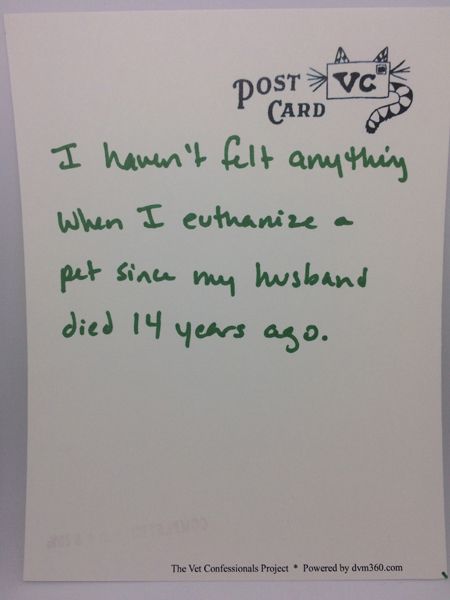 POST
CARD
VC
I haven't felt anything
when I euthanize a
pet since my husband
died 14 years ago.
The Vet Confessionals Project * Powered by dvm360.com